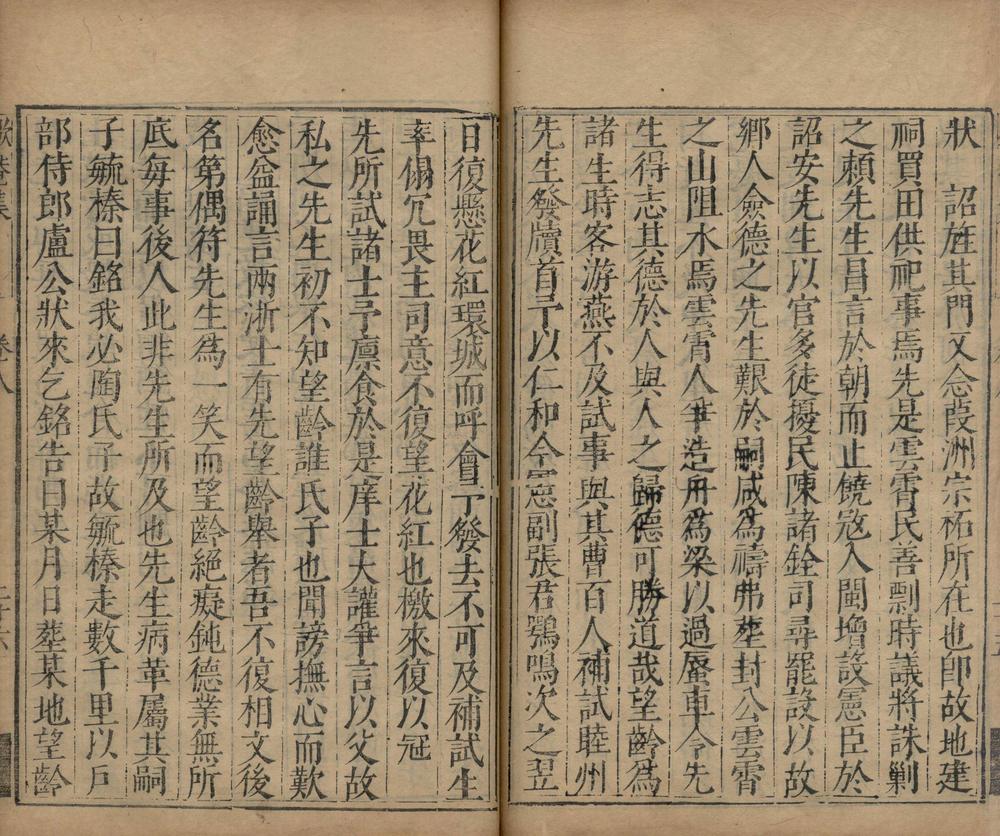 狀　詔旌其門又念葭洲宗祏所在也卽故地建
祠買田供祀事焉先是雲霄民善剽時議將誅剿
之賴先生昌言於朝而止饒寇入閩增設憲臣於
詔安先生以官多徒擾民陳諸銓司尋罷設以故
鄉人僉德之先生艱於嗣咸爲禱弗塟封公雲霄
之山阻水焉雲霄人爭造舟爲梁以過蜃車令先
生得志其德於人與人之歸德可勝道哉望齡爲
諸生時客游燕不及試事與其曹百人補試睦州
先生發牘首予以仁和令憲副張君鶚鳴次之翌
日復懸花紅環城而呼會予發去不可及補試生
率傝冗畏主司意不復望花紅也檄來復以冠
先所試諸士予廩食於是庠士大讙爭言以父故
私之先生初不知望齡誰氏子也聞謗撫心而歎
愈益誦言兩浙士有先望齡舉者吾不復相文後
名第偶符先生爲一笑而望齡絕癡鈍德業無所
底每事後人此非先生所及也先生病革屬其嗣
子毓榛曰銘我必陶氏子故毓榛走數千里以戶
部侍郎盧公狀來乞銘告曰某月日塟某地望齡
歇菴集
卷八